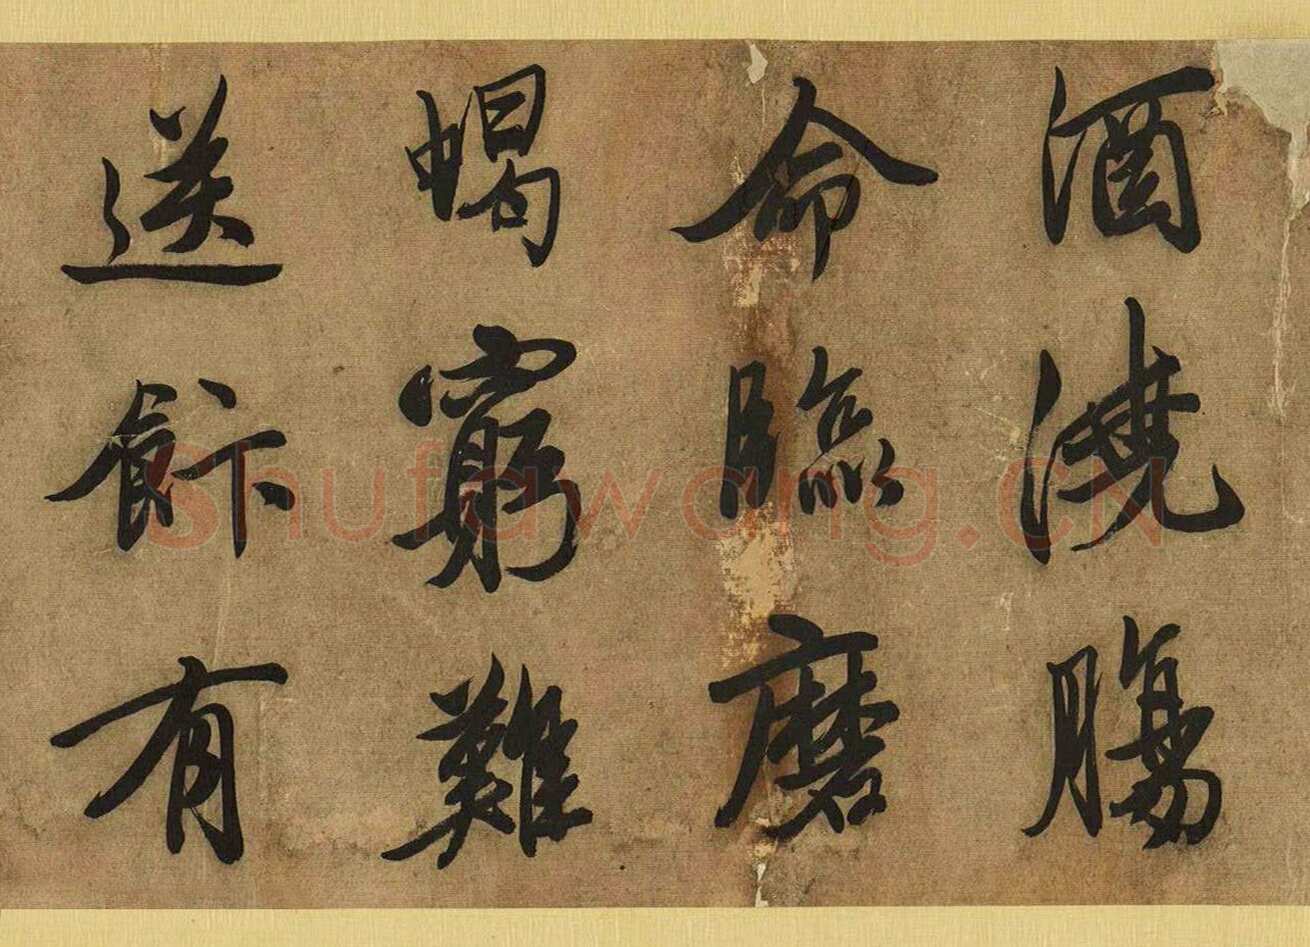 酒澆腸
命臨磨
蝎窮難
送餅有
Shufawang.CN